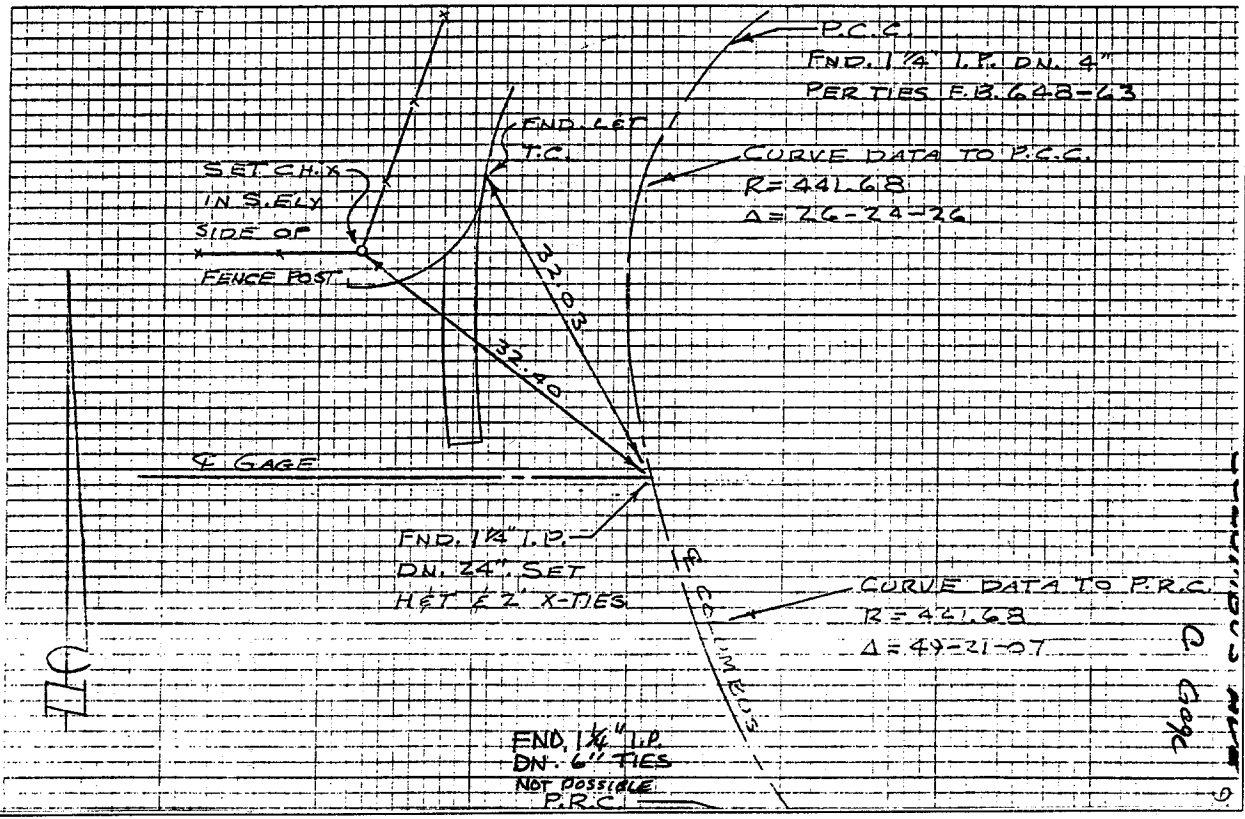 P.C.C.
FND. 1 1/4" I.P. DN. 4"
PER TIES F.B. 648-63
FND. L&T
T.C.
CURVE DATA TO P.C.C.
R=441.68
Δ=26-24-26
SET CH. X
IN S.ELY
SIDE OF
FENCE POST
32.03
32.40
℄ GAGE
FND. 1 1/4" I.P.
DN. 24". SET
H&T & 2' X-TIES
℄ COLUMBUS
CURVE DATA TO P.R.C.
R=441.68
Δ=49-21-07
@
Gage
FND. 1 1/4" I.P.
DN. 6" TIES
NOT POSSIBLE
P.R.C.